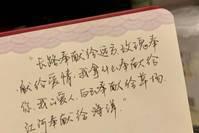 "长路奉献给远方,玫瑰奉
献给爱情,我拿什么奉献给
你,我的爱人。白云奉献给草场,
江河奉献给海洋"